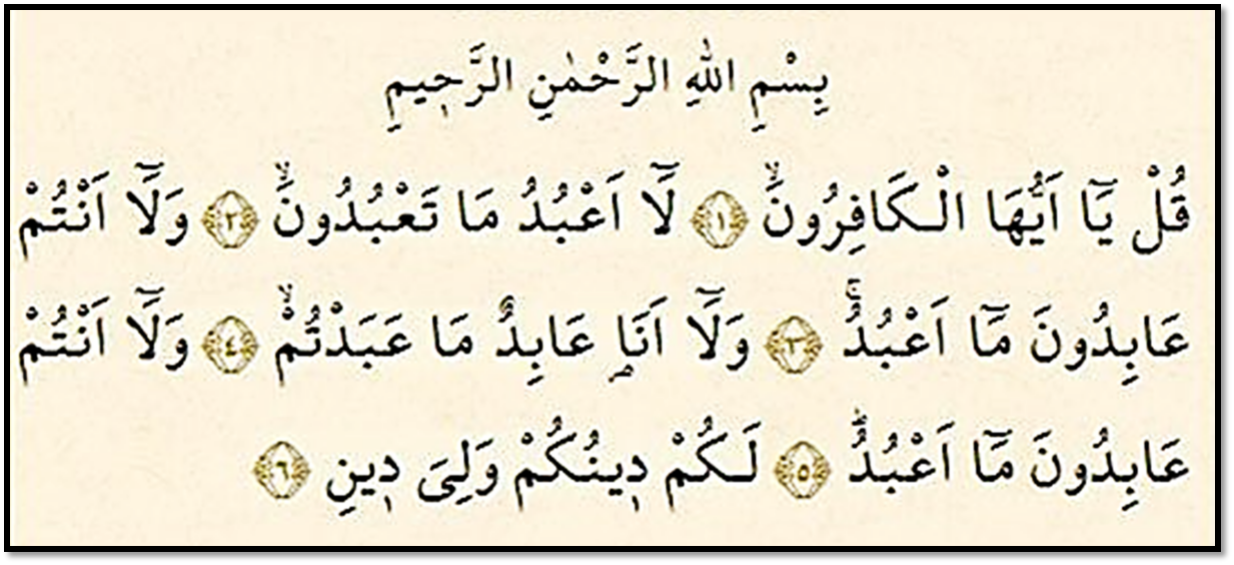 بِسْمِ اللّٰهِ الرَّحْمٰنِ الرَّح۪يمِ
قُلْ يَٓا اَيُّهَا الْـكَافِرُونَۙ ﴿١﴾ لَٓا اَعْبُدُ مَا تَعْبُدُونَۙ ﴿٢﴾ وَلَٓا اَنْتُمْ
عَابِدُونَ مَٓا اَعْبُدُۚ ﴿٣﴾ وَلَٓا اَنَا۬ عَابِدٌ مَا عَبَدْتُمْۙ ﴿٤﴾ وَلَٓا اَنْتُمْ
عَابِدُونَ مَٓا اَعْبُدُۜ ﴿٥﴾ لَـكُمْ د۪ينُكُمْ وَلِيَ د۪ينِ ﴿٦﴾